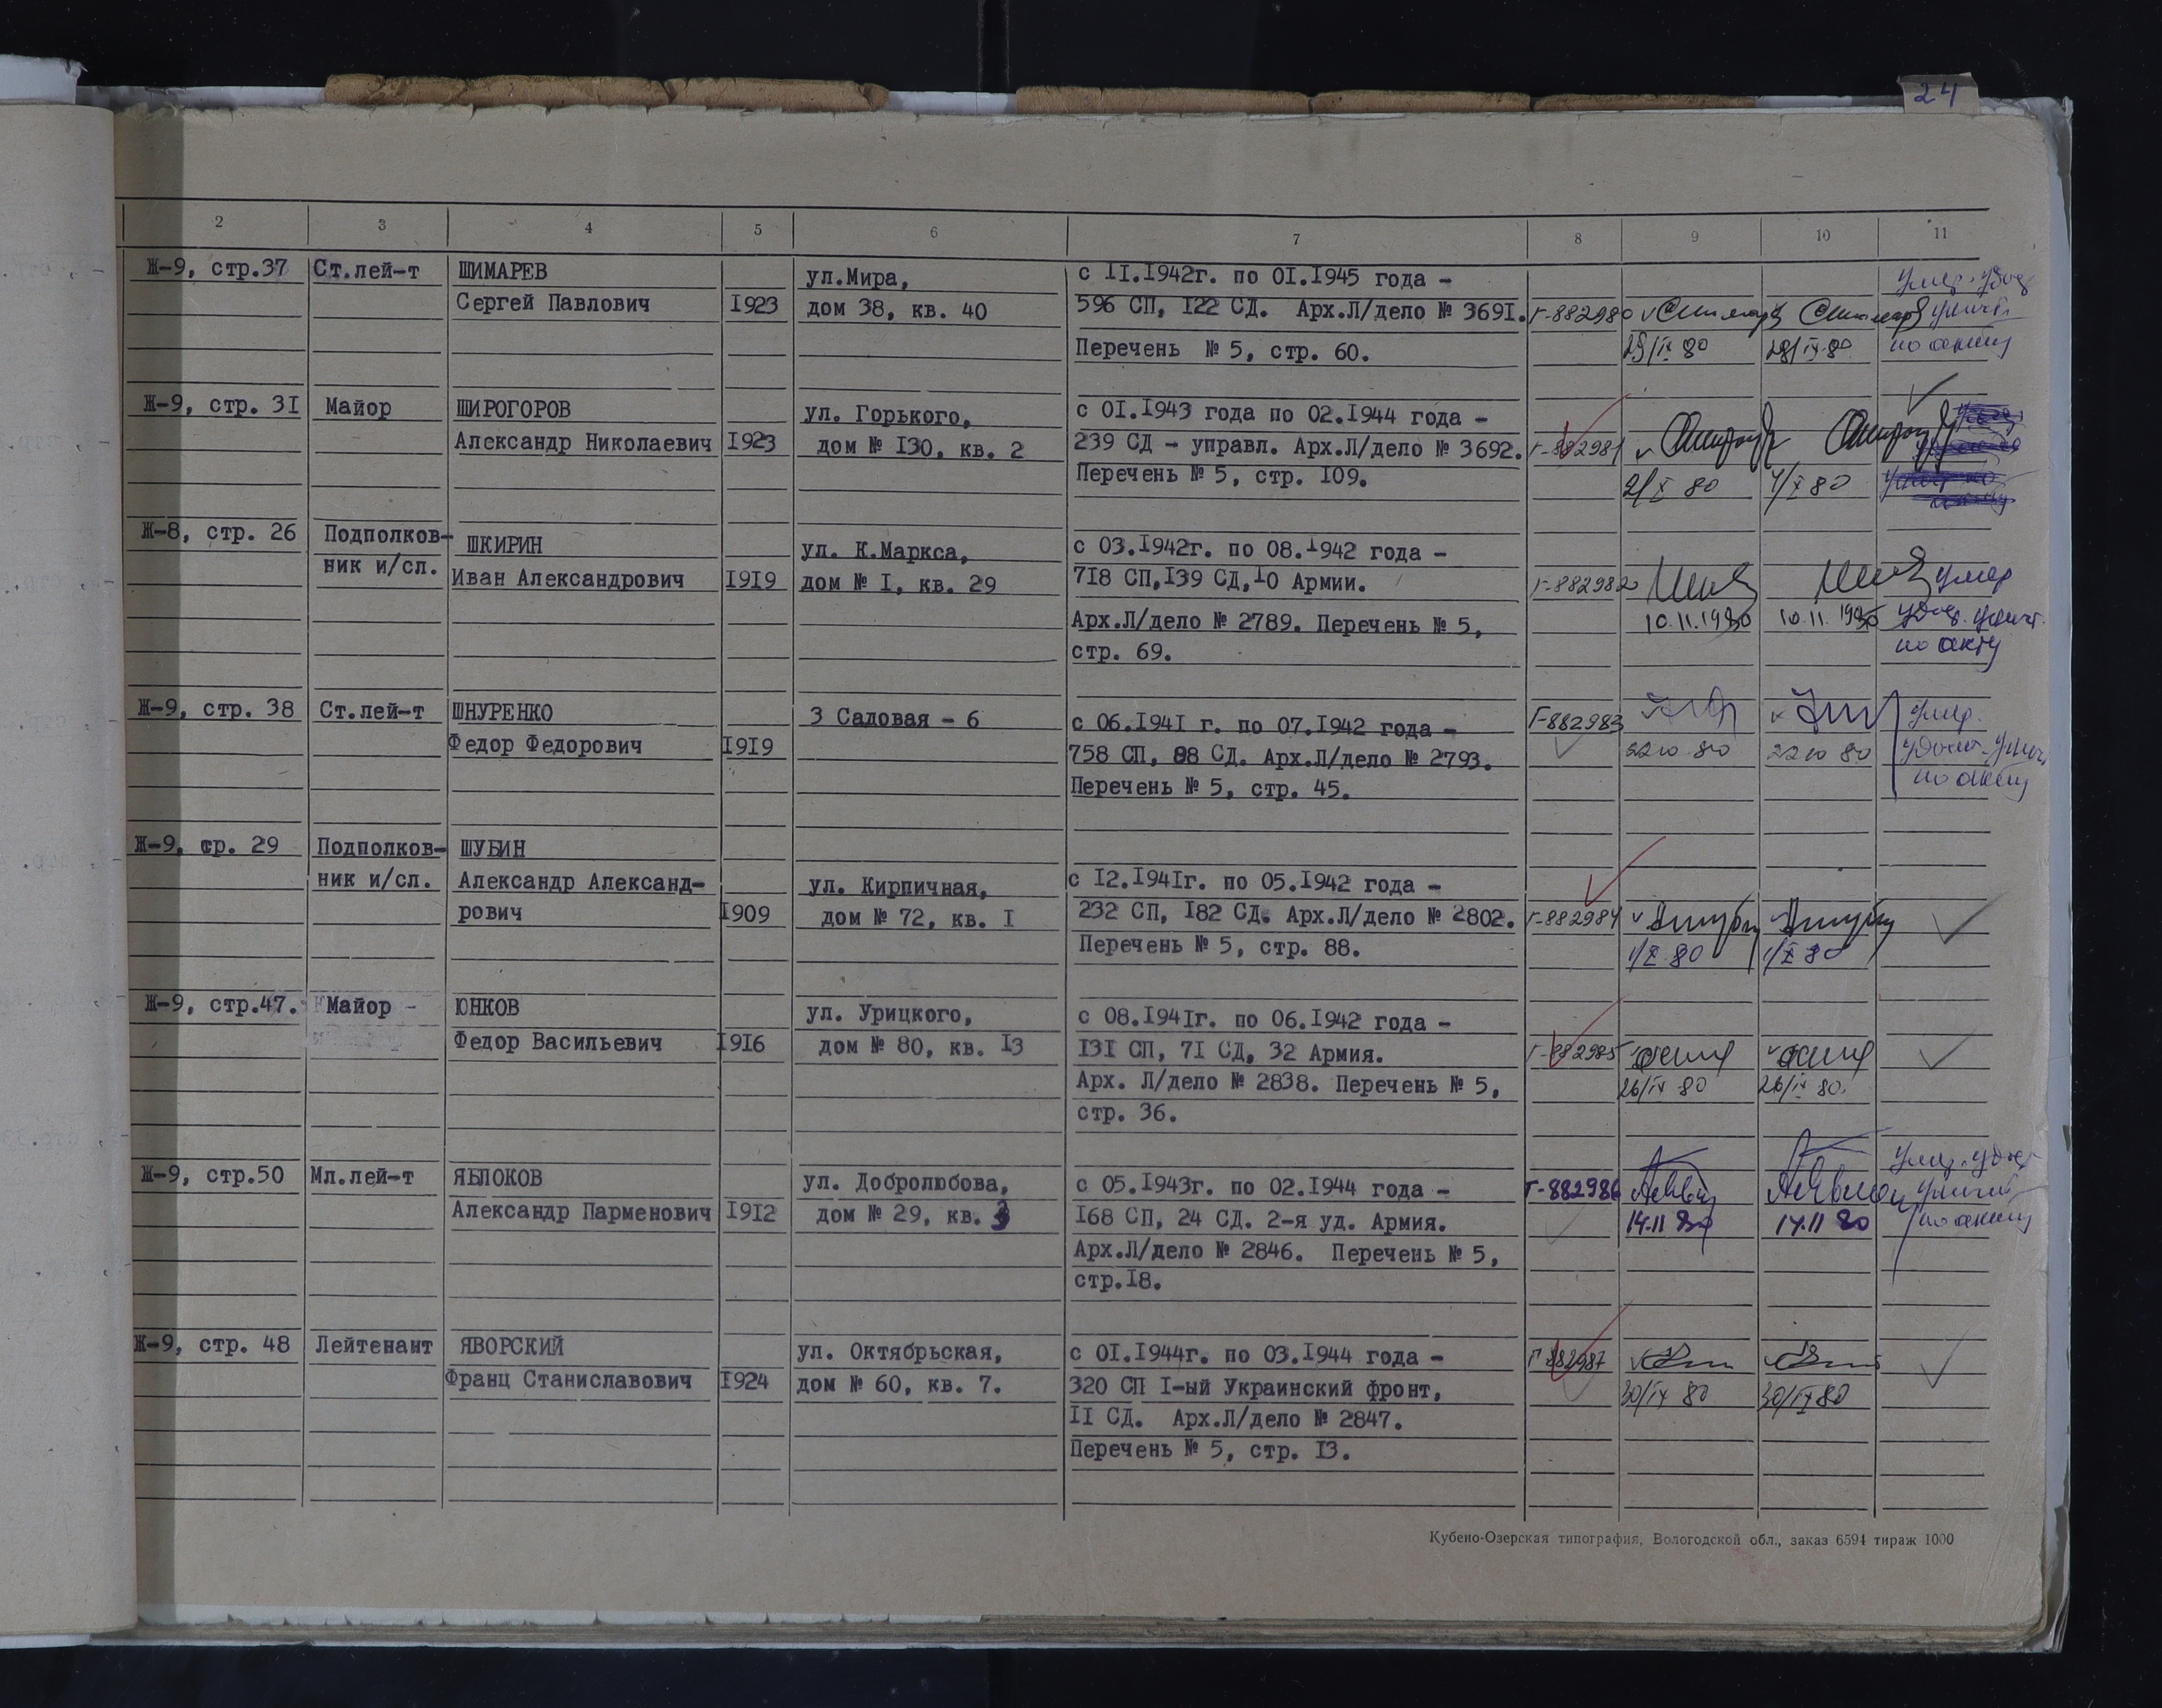 24
2 3 4 5 6 7 8 9 10 11
Ж-9, стр.37 Ст.лей-т ШИМАРЕВ ул.Мира, с II.I942г. по OI.I945 года - умер. удос
Сергей Павлович I923 дом 38, кв. 40 596 СП, I22 СД. Арх.Л/дело № 369I. Г-882980 уничт.
Перечень № 5, стр. 60. 29/IX 80 28/IX-80 по акту
Ж-9, стр. 3I Майор ШИРОГОРОВ ул. Горького, с OI.I943 года по 02.I944 года -
Александр Николаевич I923 дом № I30, кв. 2 239 СД - управл. Арх.Л/дело № 3692. Г-882981
Перечень № 5, стр. I09. 2/X 80 4/X 80
Ж-8, стр. 26 Подполков- ШКИРИН ул. К.Маркса, с 03.I942г. по 08.I942 года -
ник и/сл. Иван Александрович I9I9 дом № I, кв. 29 7I8 СП,I39 СД,I0 Армии. Г-882982 умер
Арх.Л/дело № 2789. Перечень № 5, 10.11.1980 10.11.1980 удос. уничт.
стр. 69. по акту
Ж-9, стр. 38 Ст.лей-т ШНУРЕНКО 3 Садовая - 6 с 06.I94I г. по 07.I942 года - Г-882983 умер.
Федор Федорович I9I9 758 СП, 88 СД. Арх.Л/дело № 2793. 22 10 80 22 10 80 удост. уничт
Перечень № 5, стр. 45. по акту
Ж-9, стр. 29 Подполков- ШУБИН
ник и/сл. Александр Александ- ул. Кирпичная, с I2.I94Iг. по 05.I942 года -
рович I909 дом № 72, кв. I 232 СП, I82 СД. Арх.Л/дело № 2802. Г-882984
Перечень № 5, стр. 88. 1/X 80 1/X 80
Ж-9, стр.47. Майор - ЮНКОВ ул. Урицкого, с 08.I94Iг. по 06.I942 года -
Федор Васильевич I9I6 дом № 80, кв. I3 I3I СП, 7I СД, 32 Армия. Г-882985
Арх. Л/дело № 2838. Перечень № 5, 26/IX 80 26/IX 80.
стр. 36.
Ж-9, стр.50 Мл.лей-т ЯБЛОКОВ ул. Добролюбова, с 05.I943г. по 02.I944 года - Г-882986 умер. удост
Александр Парменович I9I2 дом № 29, кв. 3 I68 СП, 24 СД. 2-я уд. Армия. 14.11 80 14.11 80 по акту
Арх.Л/дело № 2846. Перечень № 5,
стр.I8.
Ж-9, стр. 48 Лейтенант ЯВОРСКИЙ ул. Октябрьская, с OI.I944г. по 03.I944 года - Г-882987
Франц Станиславович I924 дом № 60, кв. 7. 320 СП I-ый Украинский фронт, 30/IX 80 30/IX 80
II СД. Арх.Л/дело № 2847.
Перечень № 5, стр. I3.
Кубено-Озерская типография, Вологодской обл., заказ 6594 тираж 1000